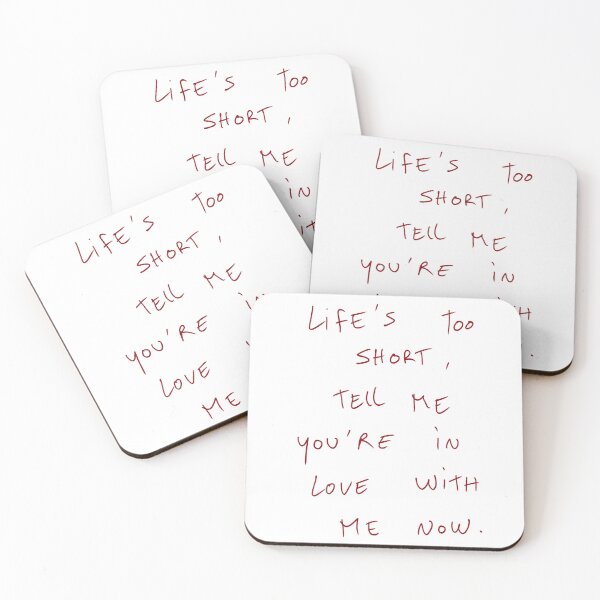 LiFE'S Too
SHORT,
TELL ME
iN
LiFE'S Too
SHORT,
TELL ME
YOU'RE iN
LiFE'S Too
SHORT,
TELL ME
YOU'RE iN
LOVE
ME
LiFE'S Too
SHORT,
TELL ME
YOU'RE iN
LOVE WiTH
ME NOW.